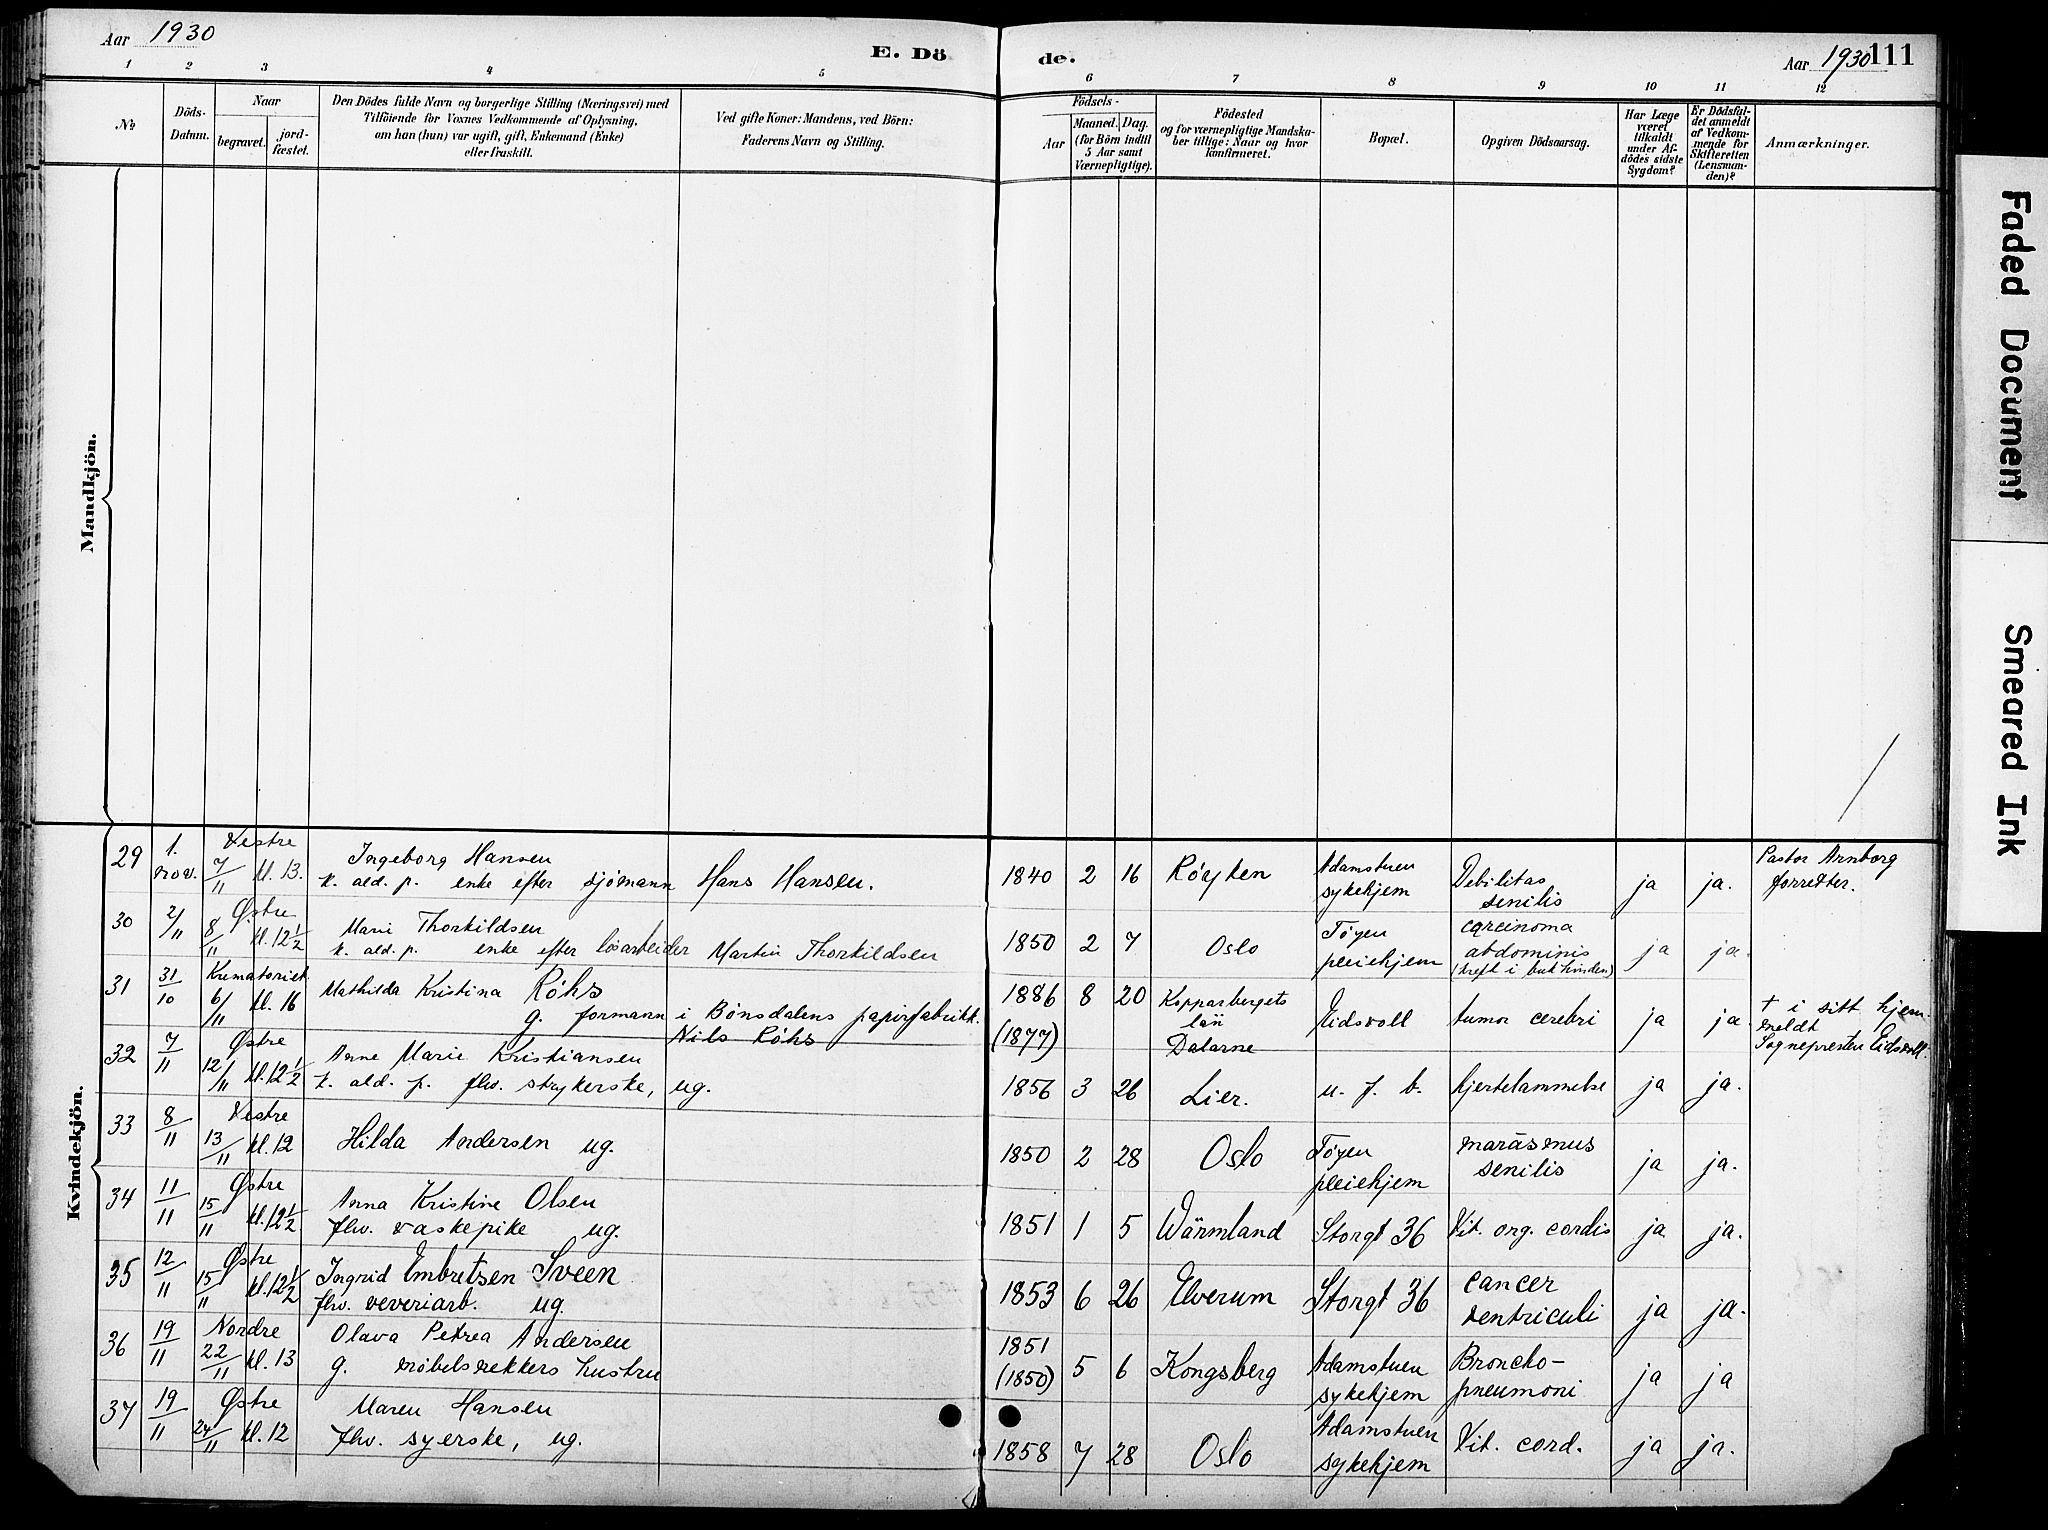 Aar 1930
E. Döde.
Aar 1930 111
1 2 3 4 5 6 7 8 9 10 11 12
No
Döds-Datum.
Naar
begravet.
jord-fæstet.
Den Dödes fulde Navn og borgerlige Stilling (Næringsvei) med
Tilföiende for Voxnes Vedkommende af Oplysning,
om han (hun) var ugift, gift, Enkemand (Enke)
eller fraskilt.
Ved gifte Koner: Mandens, ved Börn:
Faderens Navn og Stilling.
Födsels-
Aar
Maaned. Dag.
(for Börn indtil
5 Aar samt
Værnepligtige).
Födested
og for værnepligtige Mandska-
ber tillige: Naar og hvor
konfirmeret.
Bopæl.
Opgiven Dödsaarsag.
Har Læge
været
tilkaldt
under Af-
dödes sidste
Sygdom?
Er Dödsfal-
det anmeldt
af Vedkom-
mende for
Skifteretten
(Lensman-
den)?
Anmærkninger.
Mandkjön.
Kvindekjön.
29 1. nov. Vestre 7/11 kl. 13. Ingeborg Hansen
k. ald. p. enke efter sjömann Hans Hansen.
1840 2 16 Røyken Adamstuen sykehjem Debilitas senilis ja ja. Pastor Arnborg forretter.
30 2/11 Østre 8/11 kl. 12½ Marie Thorkildsen
k. ald. p. enke efter løsarbeider Martin Thorkildsen
1850 2 7 Oslo Tøyen pleiehjem carcinoma abdominis (kreft i bukhinden) ja ja.
31 31/10 Krematoriet 6/11 kl. 16 Mathilda Kristina Røhs
g. formann i Bønsdalens papirfabrikk. Nils Røhs
1886 (1877) 8 20 Kopparbergets län Dalarne Eidsvoll tumor cerebri ja ja † i sitt hjem meldt Sognepresten Eidsvoll.
32 7/11 Østre 12/11 kl. 12½ Anne Marie Kristiansen
k. ald. p. fhv. strykerske, ug.
1856 3 26 Lier. u. f. b. hjertelammelse ja ja.
33 8/11 Vestre 13/11 kl. 12 Hilda Andersen ug.
1850 2 28 Oslo Tøyen pleiehjem marasmus senilis ja ja.
34 11/11 Østre 15/11 kl. 12½ Anna Kristine Olsen
fhv. vaskepike ug.
1851 1 5 Wärmland Storgt 36 Vit. org. cordis ja ja.
35 12/11 Østre 15/11 kl. 12½ Ingrid Embretsen Sveen
fhv. veveriarb. ug.
1853 6 26 Elverum Storgt 36 cancer ventriculi ja ja.
36 19/11 Nordre 22/11 kl. 13 Olava Petrea Andersen
g. møbelsnekkers hustru
1851 (1850) 5 6 Kongsberg Adamstuen sykehjem Broncho-pneumoni ja ja
37 19/11 Østre 24/11 kl. 12 Maren Hansen
fhv. syerske, ug.
1858 7 28 Oslo Adamstuen sykehjem Vit. cord. ja ja.
Faded Document
Smeared Ink